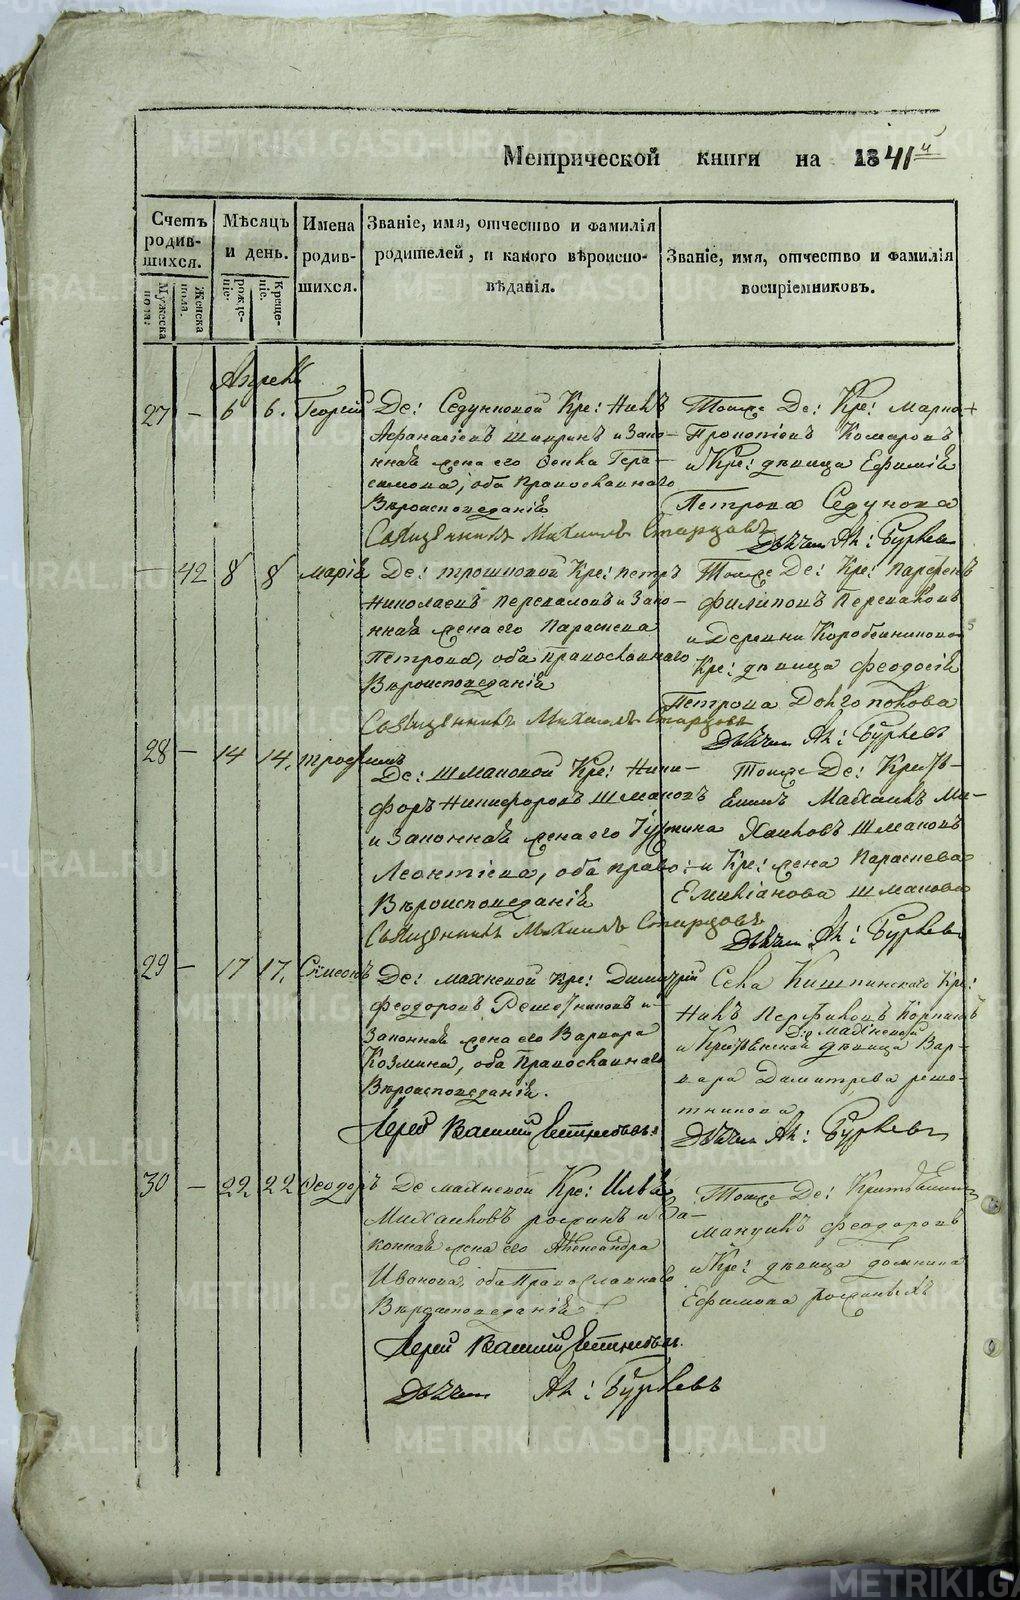 Метрической книги на 1841й
Счетъ родившихся.
Мужеска пола:
Женска пола.
Мѣсяцъ и день.
рожденіе:
Крещеніе.
Имена родившихся.
Званіе, имя, отчество и фамилія
родителей, и какого вѣроиспо-
вѣданія.
Званіе, имя, отчество и фамилія
воспріемниковъ.
Апрель
27 – 6 6. Георгій
Де: Седунковой Кре:
Афанасіевъ и Зако-
нная жена его Гера-
симова, оба Православнаго
Вѣроисповеданія
Священникъ Михаилъ Старцовъ
Тоеже Де: Кре: Марко
Прокопіевъ Комаровъ
и Кре: дѣвица Ефимія
Петрова Седунова
Дьячекъ Ал:
— 42 8 8 Марія
Де: Трошковой Кре: Петръ
Николаевъ Переваловъ и Зако-
нная жена его Параскева
Петрова, оба Православнаго
Вѣроисповеданія
Священникъ Михаилъ Старцовъ
Тоеже Де: Кре: Парфенъ
Филиповъ Перевалов
и Деревни Коробейниковой
Кре: дѣвица Феодосія
Петрова Долгополова
Дьячекъ Ал:
28 – 14 14. Трофимъ
Де: Шмаковой Кре: Ники-
форъ Никифоровъ Шмаковъ
и Законная жена его Іустина
Леонтіева, оба право:
Вѣроисповеданія
Священникъ Михаилъ Старцовъ
Тоеже Де: Кресть-
енинъ Михаилъ Ми-
хайловъ Шмаковъ
и Кре: жена Параскева
Емиліанова Шмакова
Дьячекъ Ал:
29 – 17 17. Сімеонъ
Де: Махневой Кре: Димитрій
Феодоровъ Решетниковъ и
Законная жена его Варвара
Козмина, оба Православнаго
Вѣроисповеданія.
Іерей Василій
Села Кишкинскаго Кре:
Де: Махневой
и Крестьянская дѣвица Вар-
вара Димитрева реше-
тникова
Дьячекъ Ал:
30 – 22 22 Феодоръ
Де Махневой Кре: Илья
Михайловъ рожинъ и За-
конная жена его Александра
Иванова, оба Православнаго
Вѣроисповеданія
Іерей Василій
Дьячекъ Ал:
Тоеже Де:
Мануилъ Феодоровъ
и Кре: дѣвица Домника
Ефимова
METRIKI.GASO-URAL.RU